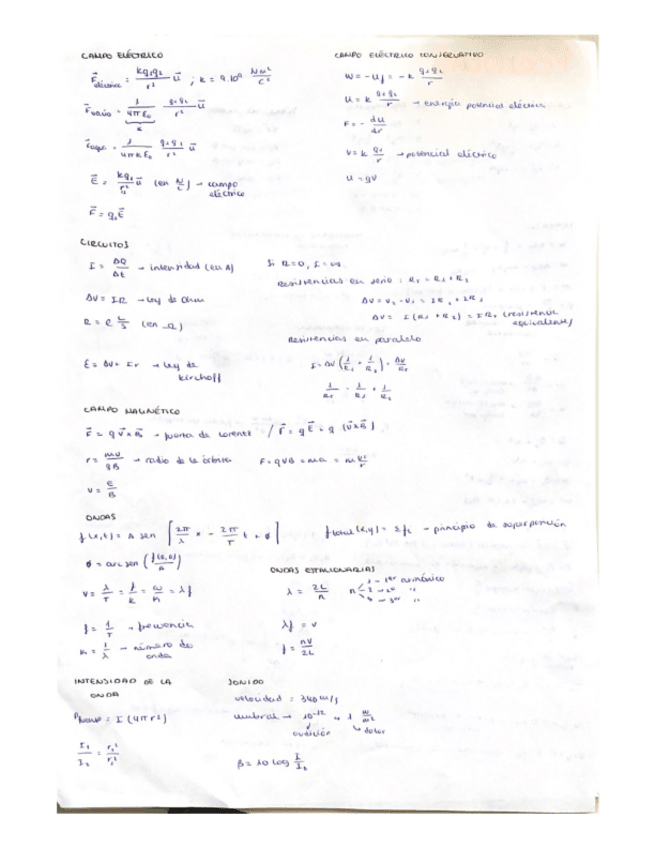 CAMPO ELÉCTRICO
F⃗eléctrica = kq₁q₂/r² u⃗ ; k = 9·10⁹ Nm²/C²
F⃗vacío = 1/(4πε₀) q₁q₂/r² u⃗
K
F⃗agua = 1/(4πkε₀) q₁q₂/r² u⃗
E⃗ = kq₁/r² u⃗ (en N/C) → campo eléctrico
F⃗ = q₀E⃗
CAMPO ELÉCTRICO CONSERVATIVO
W = -U_f = -k q₁q₂/r
U = k q₁q₂/r → energía potencial eléctrica
F = - dU/dr
V = k q₁/r → potencial eléctrico
U = qV
CIRCUITOS
I = ΔQ/Δt → intensidad (en A)
ΔV = IR → Ley de Ohm
R = ρ L/S (en Ω)
ε = ΔV + Ir → Ley de Kirchoff
Si R=0, I=∞.
Resistencias en serie : R_T = R₁ + R₂
ΔV = V₂ - V₁ = IR₁ + IR₂
ΔV = I(R₁ + R₂) = IR_T (resistencia equivalente)
Resistencias en paralelo
I = ΔV (1/R₁ + 1/R₂) = ΔV/R_T
1/R_T = 1/R₁ + 1/R₂
CAMPO MAGNÉTICO
F⃗ = q v⃗ x B⃗ → fuerza de Lorentz / F⃗ = qE⃗ + q (v⃗xB⃗)
r = mv/qB → radio de la órbita F = qVB = ma = m v²/r
v = E/B
ONDAS
f(x,t) = A sen [2π/λ x - 2π/T t + ϕ] f total (x,y) = Σfᵢ → principio de superposición
ϕ = arc sen (f(0,0)/A)
v = λ/T = f/k = ω/k = λf
f = 1/T → frecuencia
k = 1/λ → número de onda
ONDAS ESTACIONARIAS
λ = 2L/n n 1 → 1er armónico
2 → 2º "
3 → 3er "
λf = v
f = nV/2L
INTENSIDAD DE LA ONDA
= I (4πr²)
I₁/I₂ = r₂²/r₁²
SONIDO
velocidad = 340 m/s
umbral → 10⁻¹² 1 W/m²
audición dolor
β = 10 log I/I₀